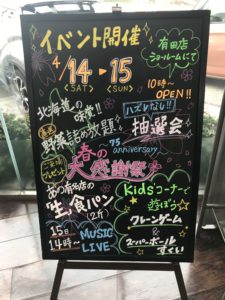 イベント開催
有田店
ショールームにて
4/14▶15
<SAT> <SUN>
10時~
OPEN!!
北海道の
味覚!!
ハズレなし!!
抽選会
野菜詰め放題
~75
anniversary~
春の
大感謝祭
プレゼント
あの有名店の
"生"食パン
(2斤)
Kidsコーナーで
遊ぼう
クレーンゲーム
&
スーパーボール
すくい
15日
14時~
MUSIC
LIVE